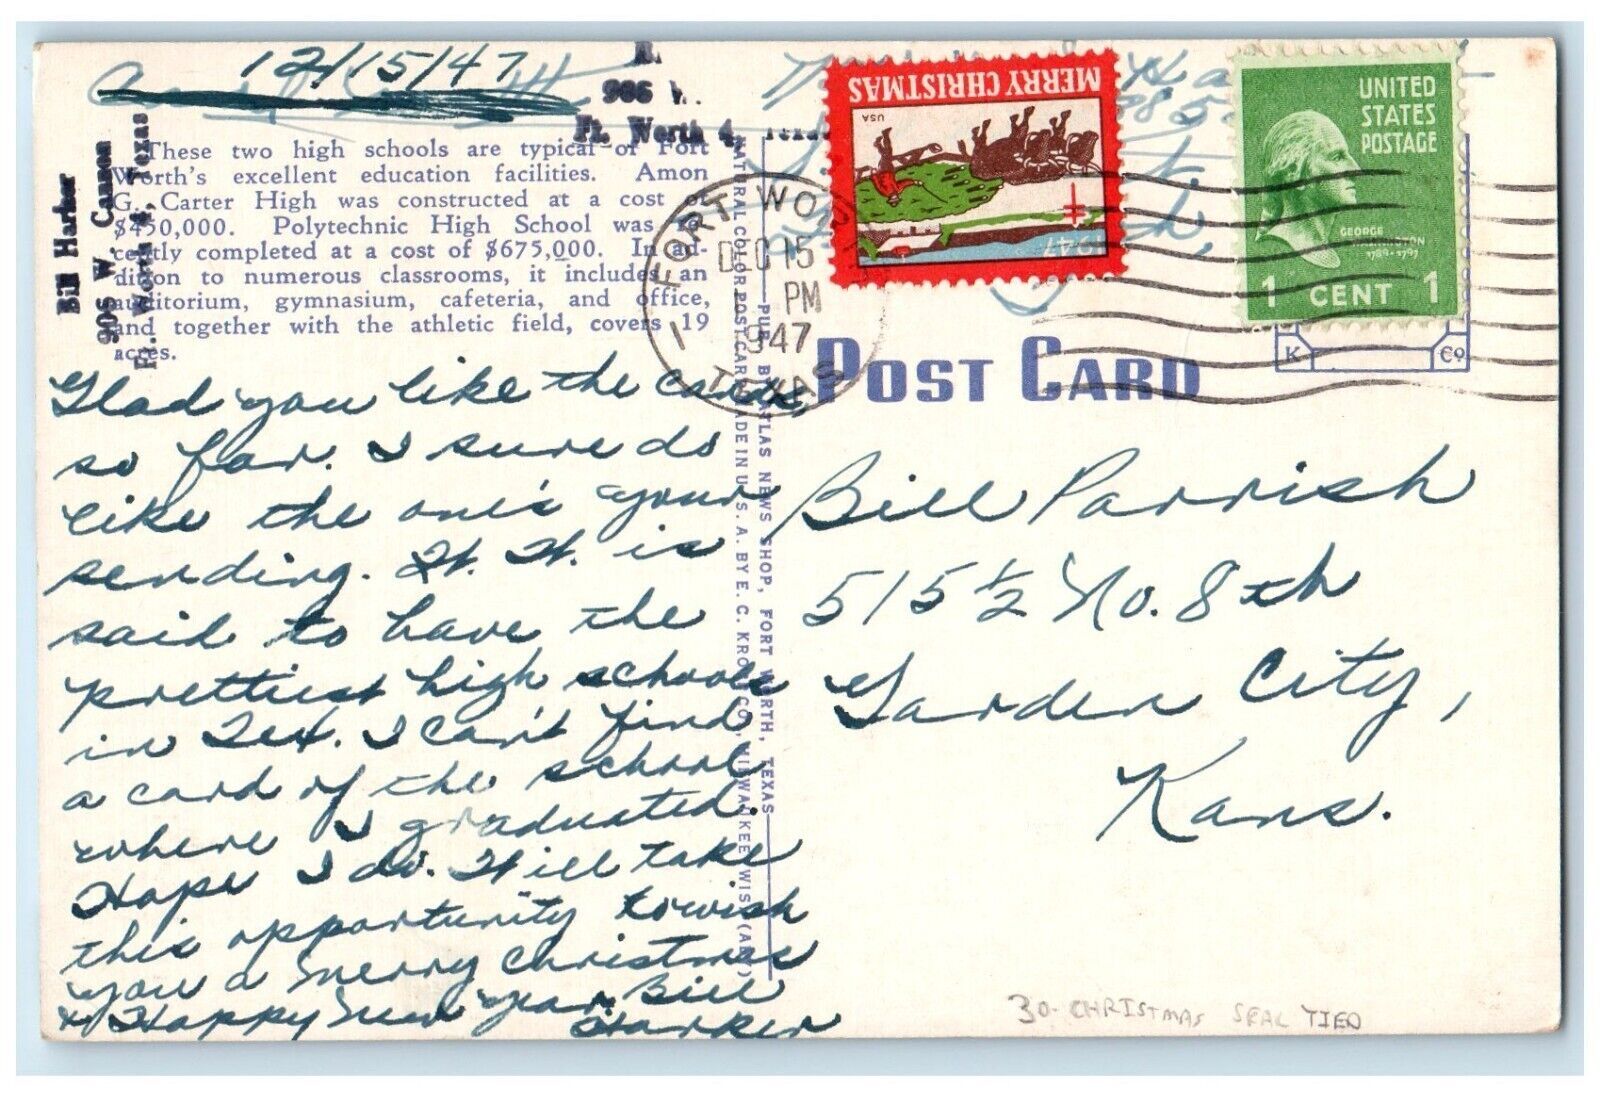 12/15/47
906 W.
Ft. Worth 4,
Bill Harker
906 W. Cannon
Ft. Worth 4, Texas
These two high schools are typical of Fort
Worth's excellent education facilities. Amon
G. Carter High was constructed at a cost of
$450,000. Polytechnic High School was re-
cently completed at a cost of $675,000. In ad-
dition to numerous classrooms, it includes an
auditorium, gymnasium, cafeteria, and office,
and together with the athletic field, covers 19
acres.
Glad you like the cards,
so far. I sure do
like the one's your
sending. Ft. W. is
said to have the
prettiest high schools
in Tex. I can't find
a card of the school
where I graduated.
Hope I do. Will take
this opportunity to wish
you a Merry Christmas
& Happy New Year. Bill
Harker
NATURAL COLOR POST CARD MADE IN U.S.A. BY E. C. KROPP CO., MILWAUKEE, WIS.
PUB. BY ATLAS NEWS SHOP, FORT WORTH, TEXAS
FORT WORTH
DEC 15
PM
1947
TEXAS
1
MERRY CHRISTMAS
USA
1947
UNITED
STATES
POSTAGE
GEORGE
WASHINGTON
1789-1797
1 CENT 1
K Co
POST CARD
Bill Parrish
515 1/2 No. 8th
Garden City,
Kans.
30- CHRISTMAS SEAL TIED